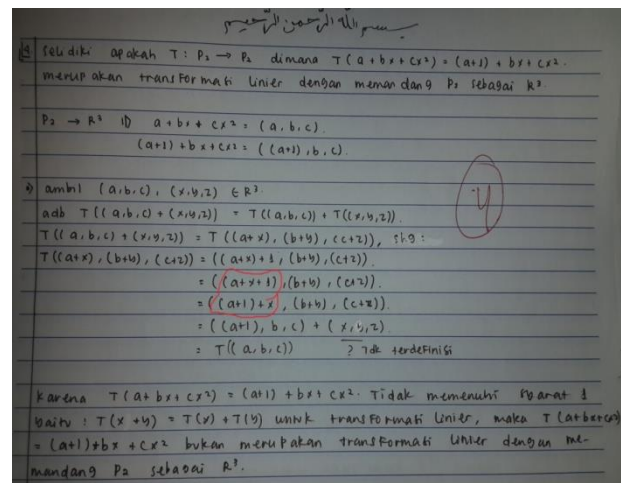 بسم الله الرحمن الرحيم
Selidiki apakah T : P₂ → P₂ dimana T(a+bx+cx²) = (a+1) + bx + cx².
merupakan transformati linier dengan memandang P₂ sebagai R³.
P₂ → R³ ID a+bx+cx² = (a,b,c).
(a+1)+bx+cx² = ((a+1),b,c).
ambil (a,b,c), (x,y,z) ∈ R³.
adb T((a,b,c) + (x,y,z)) = T((a,b,c)) + T((x,y,z)).
T((a,b,c) + (x,y,z)) = T((a+x), (b+y), (c+z)), shg :
T((a+x), (b+y), (c+z)) = ((a+x)+1, (b+y), (c+z)).
= ((a+x+1), (b+y), (c+z)).
= ((a+1)+x, (b+y), (c+z)).
= ((a+1), b, c) + (x,y,z).
= T((a,b,c)) ? Tdk terdefinisi
karena T(a+bx+cx²) = (a+1) + bx + cx². Tidak memenuhi syarat 1
yaitu : T(x+y) = T(x) + T(y) untuk transformati linier, maka T(a+bx+cx²)
= (a+1)+bx + cx² bukan merupakan transformati linier dengan me-
mandang P₂ sebagai R³.